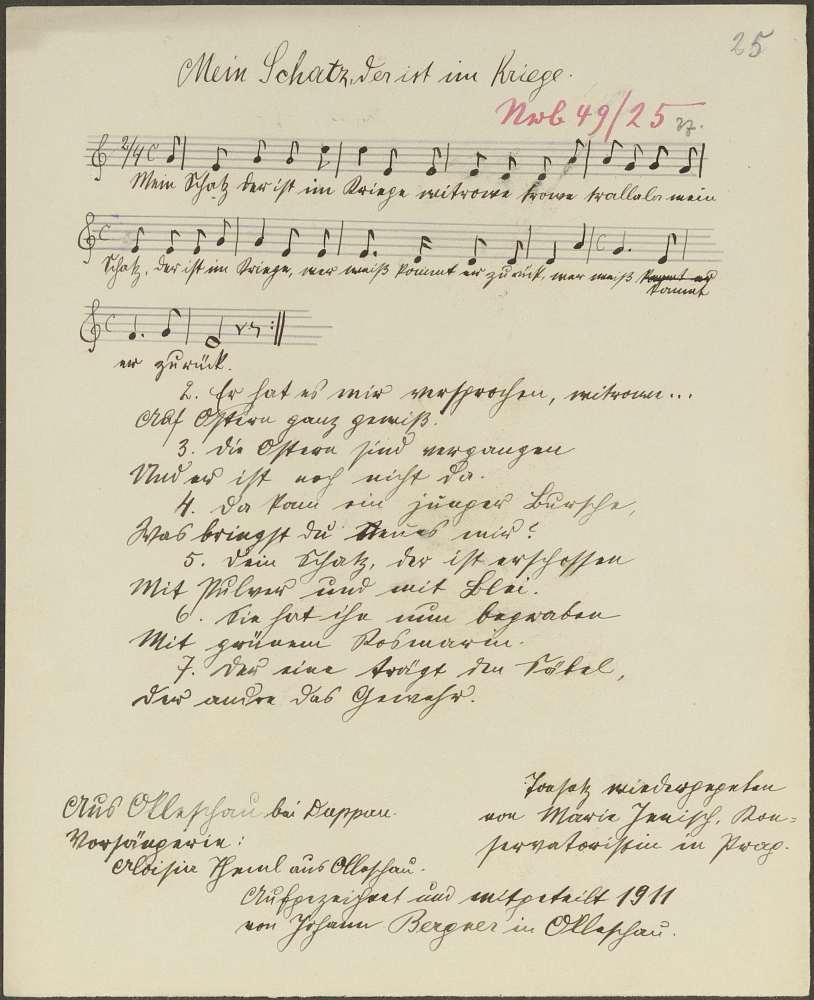 25
Mein Schatz, der ist im Kriege.
Nrb 49/25
2/4 C
Mein Schatz der ist im Kriege witrowe trowe trallala mein
C
Schatz, der ist im Kriege, wer weiß kommt er zurück, wer weiß kommt er
kommt
C
er zurück.
2. Er hat es mir versprochen, witrown...
Auf Ostern ganz gewiß.
3. Die Ostern sind vergangen
Und er ist noch nicht da.
4. Da kam ein junger Bursche,
Was bringst du Neues mir?
5. Dein Schatz, der ist erschossen
Mit Pulver und mit Blei.
6. Sie hat ihn nun begraben
Mit grünem Rosmarin.
7. Der eine trägt den Säbel,
Der andre das Gewehr.
Tonsatz wiedergegeben
Aus Olleschau bei Dappau.
von Marie Jenisch, Kon=
Vorsängerin:
servatoristin in Prag.
Aloisia Heml aus Olleschau.
Aufgezeichnet und mitgeteilt 1911
von Johann Bergner in Olleschau.